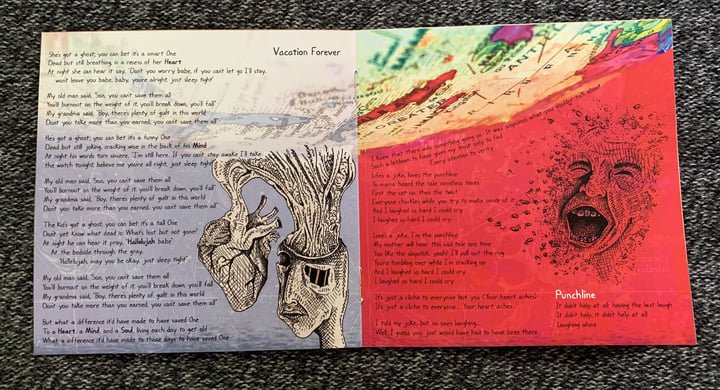 Vacation Forever
She's got a ghost; you can bet it's a smart One
Dead but still breathing, in a recess of her Heart
At night she can hear it say, "Don't you worry babe, if you can't let go I'll stay,
won't leave you babe, baby, you're alright, just sleep tight"
My old man said, "Son, you can't save them all
You'll burnout on the weight of it, you'll break down, you'll fall"
My grandma said, "Boy, there's plenty of guilt in this world
Don't you take more than you earned, you can't save them all"
He's got a ghost; you can bet it's a funny One
Dead but still joking, cracking wise in the back of his Mind
At night his words turn sincere, "I'm still here. If you can't stay awake I'll take
the watch tonight, believe me you're all right, just sleep tight"
My old man said, "Son, you can't save them all
You'll burnout on the weight of it, you'll break down, you'll fall"
My grandma said, "Boy, there's plenty of guilt in this world
Don't you take more than you earned, you can't save them all"
The Kid's got a ghost, you can bet it's a tall One
Don't yet know what dead is; What's lost but not gone?
At night he can hear it pray, "Hallelujah babe"
At the bedside through the gray,
"Hallelujah, may you be okay, just sleep tight"
My old man said, "Son, you can't save them all
You'll burnout on the weight of it, you'll break down, you'll fall"
My grandma said, "Boy, there's plenty of guilt in this world
Don't you take more than you earned, you can't save them all"
But what a difference it'd have made to have saved One
To a Heart, a Mind, and a Soul, living each day to get old
What a difference it'd have made to those days to have saved One
I knew that there was something going on. It was suspicious what your
Such a letdown to have given my trust only to find
Every intention to
Life's a joke, loves the punchline
So mama heard the tale countless times
First the set-up, then the twist
Everyone chuckles while you try to make sense of it
And I laughed so hard I could cry
I laughed so hard I could cry
Loves a joke, I'm the punchline
My mother will hear this sad tale one time
You like the slapstick, yeah? I'll pull out the rug
You're tumbling over while I'm cracking up
And I laughed so hard I could cry
I laughed so hard I could cry
It's just a cliche to everyone but you (Your heart aches)
It's just a cliche to everyone... Your heart aches
I told my joke, but no ones laughing...
Well, I guess you just would have had to have been there
Punchline
It didn't help at all, having the last laugh
It didn't help, it didn't help at all
Laughing alone